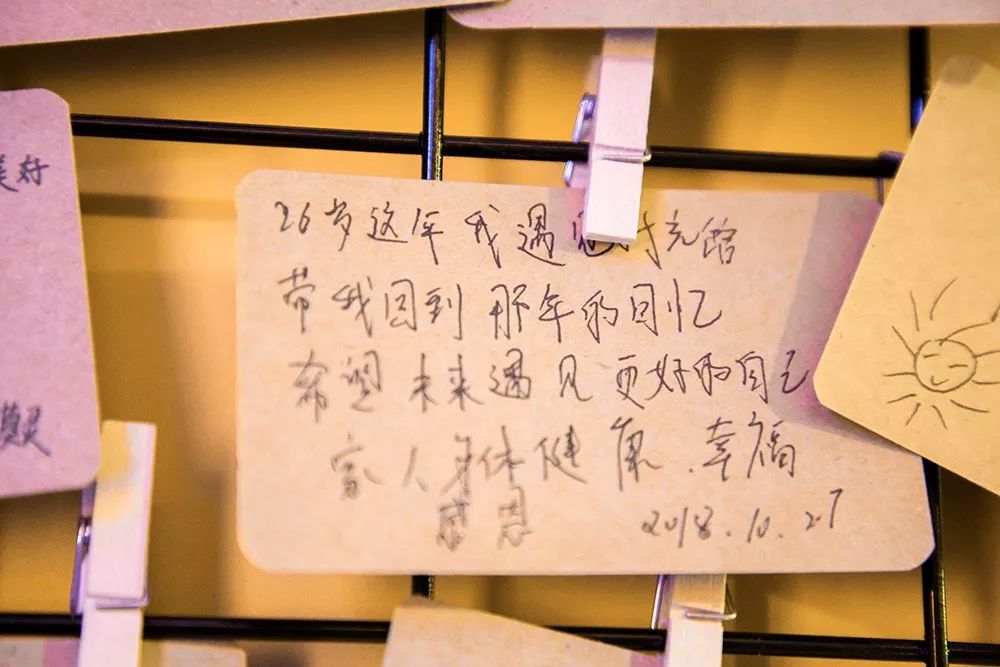 美好
观
26岁这年 我遇见时光馆
带我回到 那年的回忆
希望 未来遇见更好的自己
家人身体健康.幸福
感恩
2018.10.27